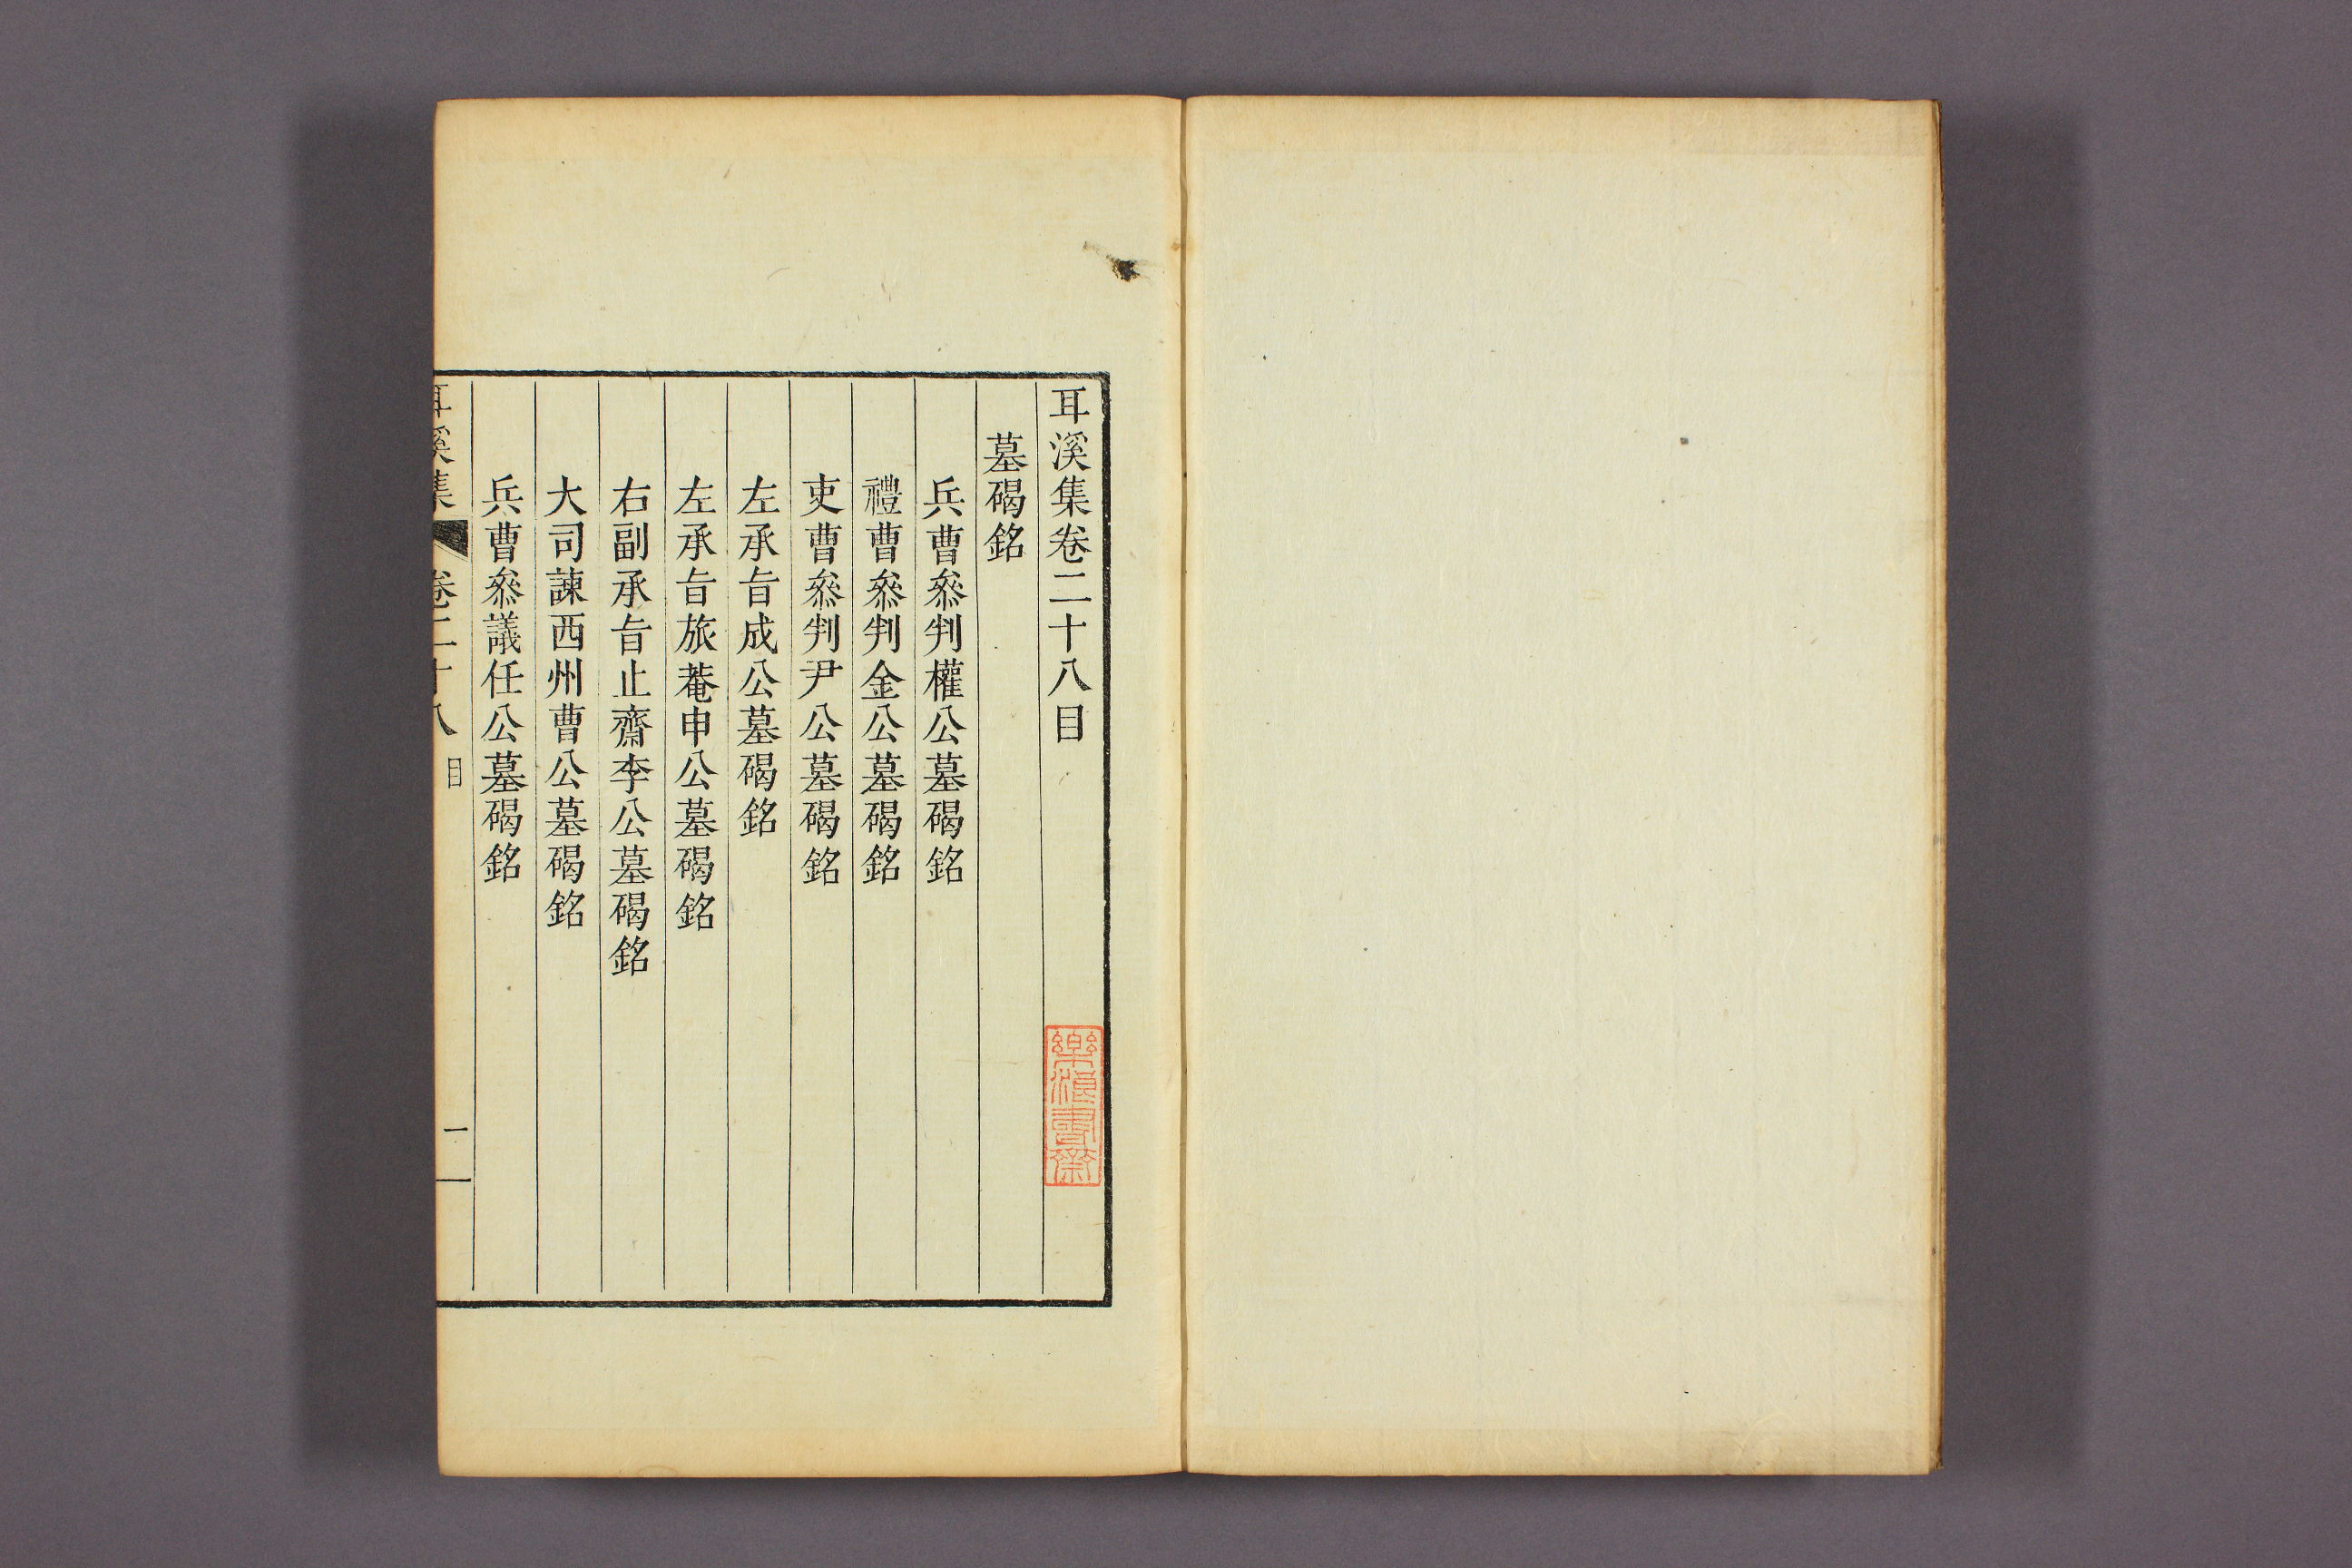 耳溪集卷二十八目
墓碣銘
兵曹叅判權公墓碣銘
禮曹叅判金公墓碣銘
吏曹叅判尹公墓碣銘
左承旨成公墓碣銘
左承旨旅菴申公墓碣銘
右副承旨止齋李公墓碣銘
大司諫西州曹公墓碣銘
兵曹叅議任公墓碣銘
耳溪集 卷二十八 目 一